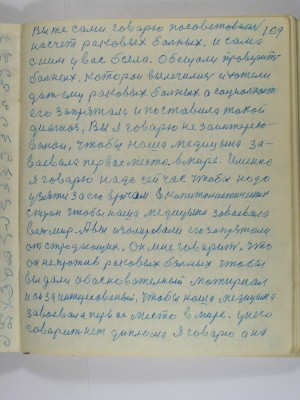 Вы те сами говарю посоветовали 109
насчет раковых больных. и сама
слим у вас была. Обещали проверить
больных. которои вылечился и хотели
дат ему раковых больных а
его запрятали и поставили такой
диагноз, Вы я говарю не заинтересо-
ванои, чтобы наша медицина за-
ваевала первае место в мире. Именно
я говарю надо сей час чтобы надо
узяти за его врачам
чтобы наша медицина завоевала
весь мир. А вы изолировали его запрятали
от страдающих. Он мне говарит, что
он непротив раковых больных чтобы
выдали обосновательный материал
и он заинтересованый, чтобы наша медицина
завоевала первае место в мире. у него
говарит нет диплома Я говарю а на